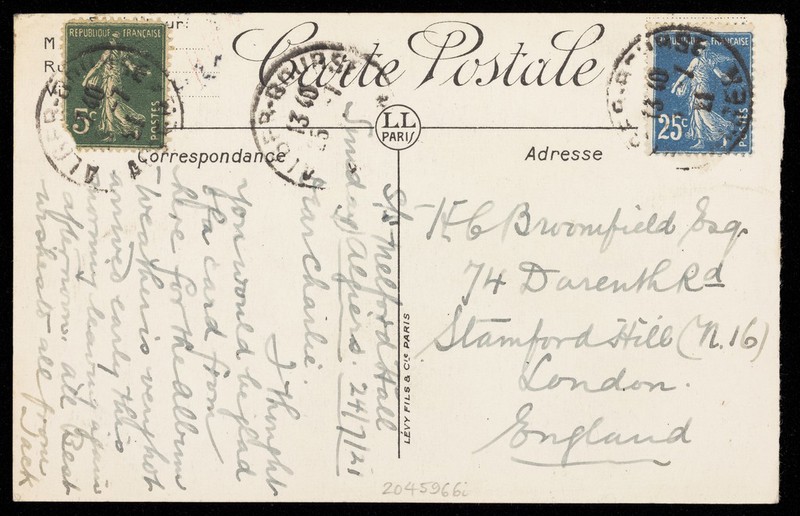 Carte Postale
Correspondance
Adresse
LL
PARIS
RÉPUBLIQUE FRANÇAISE
5c
POSTES
RÉPUBLIQUE FRANÇAISE
25c
POSTES
ALGER-BOURSE
13 40
ALGER-BOURSE
13 40
S/S Melford Hall
Sunday Algiers. 24/7/21
Dear Charlie.
I thought
you would be glad
of a card from
here for the album
- weather is very hot
arrived early this
morning leaving again
afternoon. all Best
wishes to all from
Jack
H C Broomfield Esq.
74 Darenth Rd
Stamford Hill (N.16)
London.
England
LÉVY FILS & Cie PARIS
2045966i